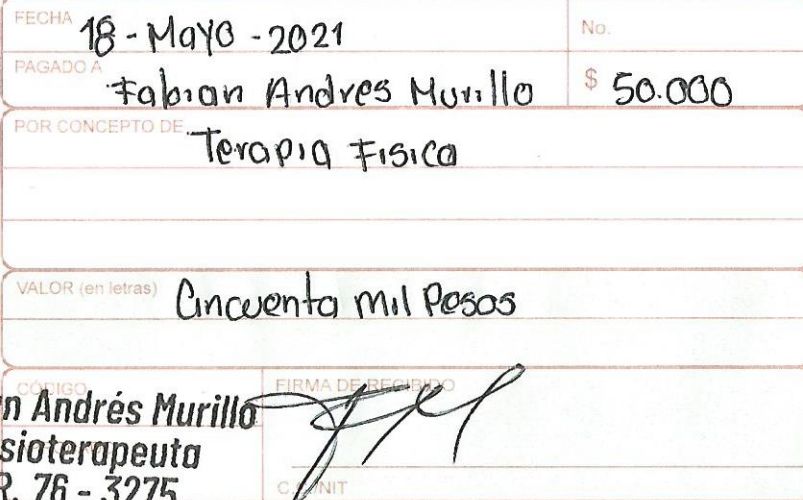 FECHA 18 - Mayo - 2021 No.
PAGADO A Fabian Andres Murillo $ 50.000
POR CONCEPTO DE Terapia Fisica
VALOR (en letras) Cincuenta mil Pesos
CÓDIGO FIRMA DE RECIBIDO
n Andrés Murillo
sioterapeuta
R. 76 - 3275
C.C./NIT